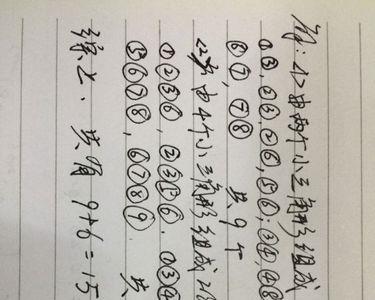 解:<1>由两个小三角形组成
①③,②③,②⑥,⑤⑥,③④,④⑧
⑥⑦,⑦⑧ 共9个
<2>为由4个小三角形组成
①②③⑥,②③⑤⑥,①③④
⑤⑥⑦⑧,⑥⑦⑧⑨ 共
综上、共有 9+6=15